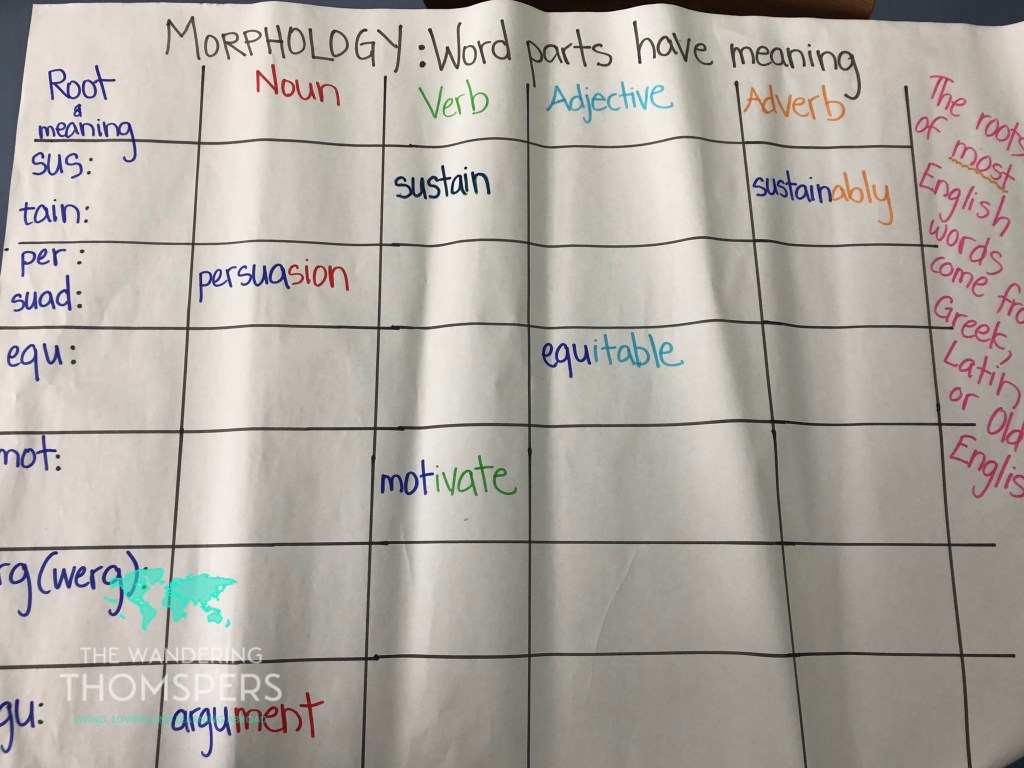 MORPHOLOGY: Word parts have meaning
Root & meaning
Noun
Verb
Adjective
Adverb
sus:
tain:
sustain
sustainably
per:
suad:
persuasion
equ:
equitable
mot:
motivate
rg (werg):
gu:
argument
The roots
of most
English
words
come fro
Greek,
Latin
or Old
Englis
THE WANDERING
THOMSPERS